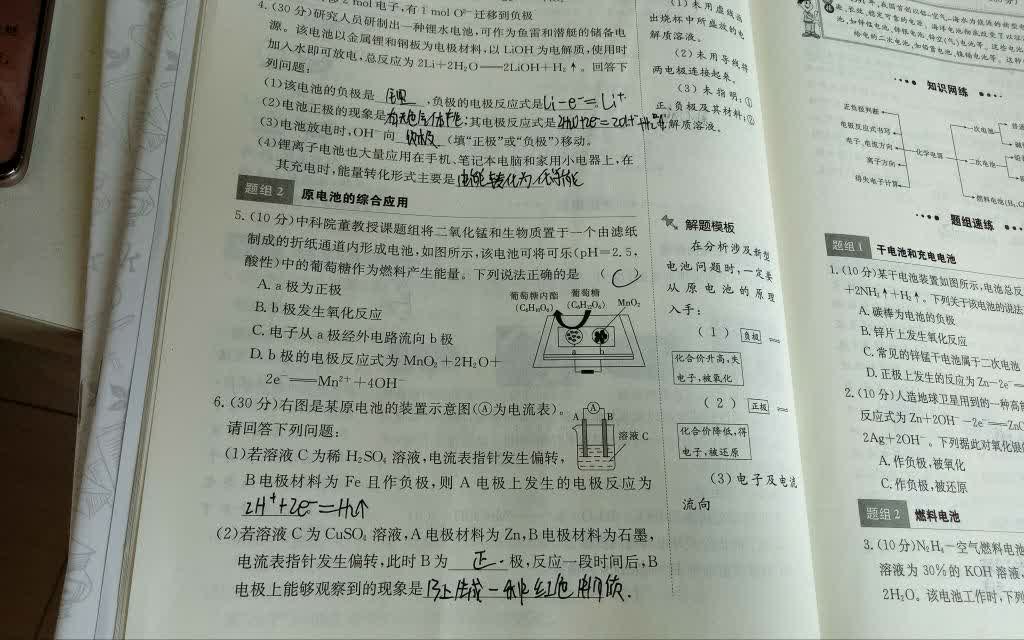 2 mol 电子,有 1 mol O²⁻ 迁移到负极
4.(30 分)研究人员研制出一种锂水电池,可作为鱼雷和潜艇的储备电
源。该电池以金属锂和钢板为电极材料,以 LiOH 为电解质,使用时
加入水即可放电,总反应为 2Li+2H₂O══2LiOH+H₂↑。回答下
列问题:
(1)该电池的负极是 锂 ,负极的电极反应式是 Li-e⁻=Li⁺
(2)电池正极的现象是 有无色气体产生 ;其电极反应式是 2H₂O+2e⁻=2OH⁻+H₂↑
(3)电池放电时,OH⁻ 向 负极 (填“正极”或“负极”)移动。
(4)锂离子电池也大量应用在手机、笔记本电脑和家用小电器上,在
其充电时,能量转化形式主要是 电能转化为化学能
题组 2 原电池的综合应用
5.(10 分)中科院董教授课题组将二氧化锰和生物质置于一个由滤纸
制成的折纸通道内形成电池,如图所示,该电池可将可乐(pH=2.5,
酸性)中的葡萄糖作为燃料产生能量。下列说法正确的是 ( C )
A. a 极为正极
B. b 极发生氧化反应
C. 电子从 a 极经外电路流向 b 极
D. b 极的电极反应式为 MnO₂+2H₂O+
2e⁻══Mn²⁺+4OH⁻
葡萄糖内酯 葡萄糖
(C₆H₁₀O₆) (C₆H₁₂O₆) MnO₂
a b
6.(30 分)右图是某原电池的装置示意图(Ⓐ为电流表)。
请回答下列问题:
A Ⓐ B
溶液 C
(1)若溶液 C 为稀 H₂SO₄ 溶液,电流表指针发生偏转,
B 电极材料为 Fe 且作负极,则 A 电极上发生的电极反应为
2H⁺+2e⁻=H₂↑
(2)若溶液 C 为 CuSO₄ 溶液,A 电极材料为 Zn,B 电极材料为石墨,
电流表指针发生偏转,此时 B 为 正 极,反应一段时间后,B
电极上能够观察到的现象是 B上生成一种红色物质.
(1)未用虚线画
出烧杯中所盛放的电
解质溶液。
(2)未用导线将
两电极连接起来。
(3)未指明:①
正、负极及其材料;②
电解质溶液。
解题模板
在分析涉及新型
电池问题时,一定要
从原电池的原理
入手:
(1)负极
化合价升高,失
电子,被氧化
(2)正极
化合价降低,得
电子,被还原
(3)电子及电流
流向
知识网络
正负极判断
电极反应式书写
电子、电流方向
离子方向
得失电子计算
化学电源
一次电池
二次电池
燃料电池
题组速练
题组 1 干电池和充电电池
1.(10 分)某干电池装置如图所示,电池总反
+2NH₃↑+H₂↑。下列关于该电池的说法
A. 碳棒为电池的负极
B. 锌片上发生氧化反应
C. 常见的锌锰干电池属于二次电池
D. 正极上发生的反应为 Zn-2e⁻
2.(10 分)人造地球卫星用到的一种高能
反应式为 Zn+2OH⁻-2e⁻══ZnO
2Ag+2OH⁻。下列据此对氧化银
A. 作负极,被氧化
C. 作负极,被还原
题组 2 燃料电池
3.(10 分)N₂H₄-空气燃料电池
溶液为 30%的 KOH 溶液,
2H₂O。该电池工作时,下列